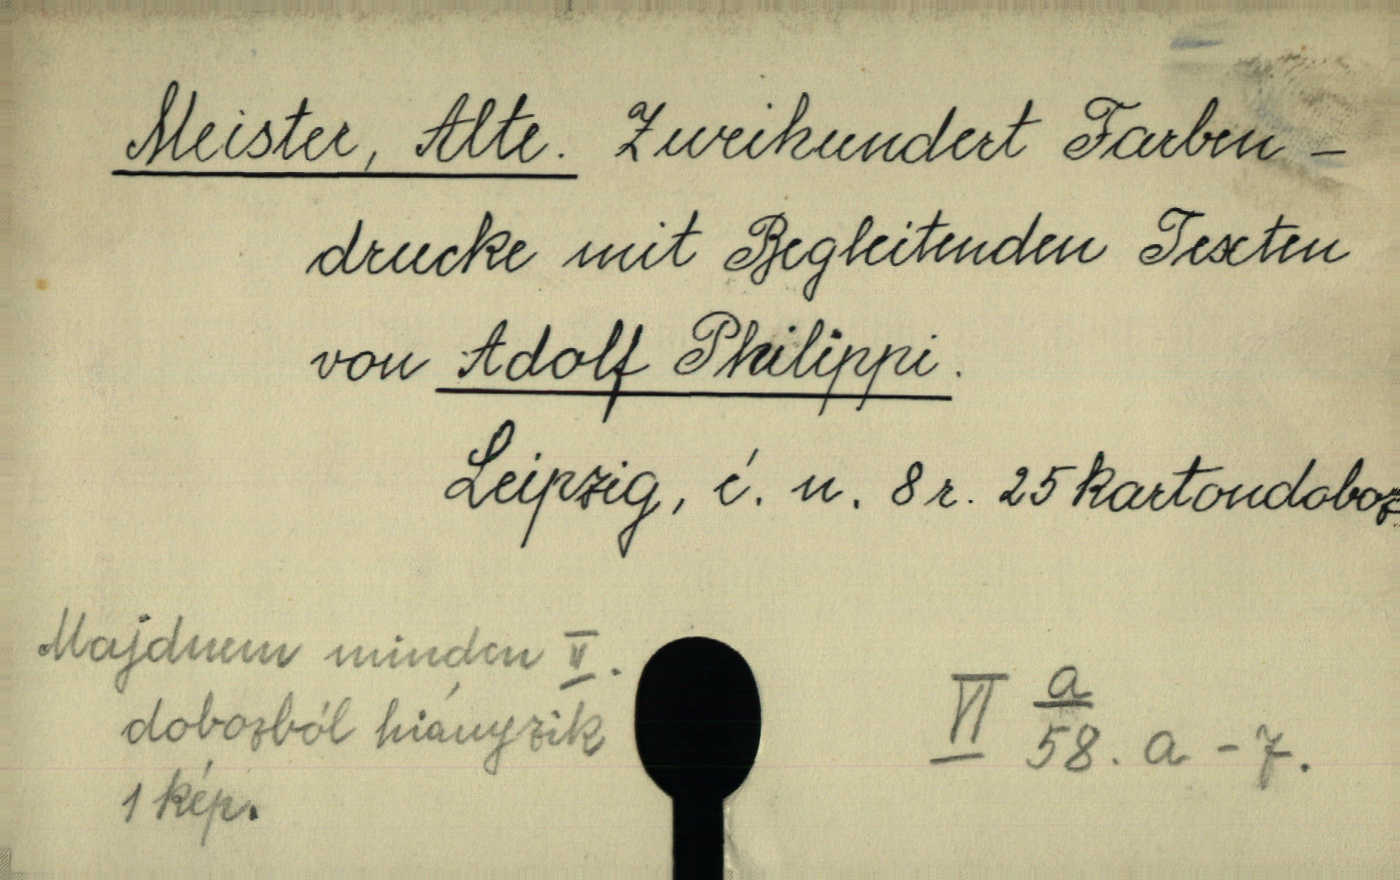 Meister, Alte. Zweihundert Farben-
drucke mit Begleitenden Texten
von Adolf Philippi.
Leipzig, é. n. 8 r. 25 kartondoboz
Majdnem minden II.
dobozból hiányzik
1 kép.
VI a
58. a - z.